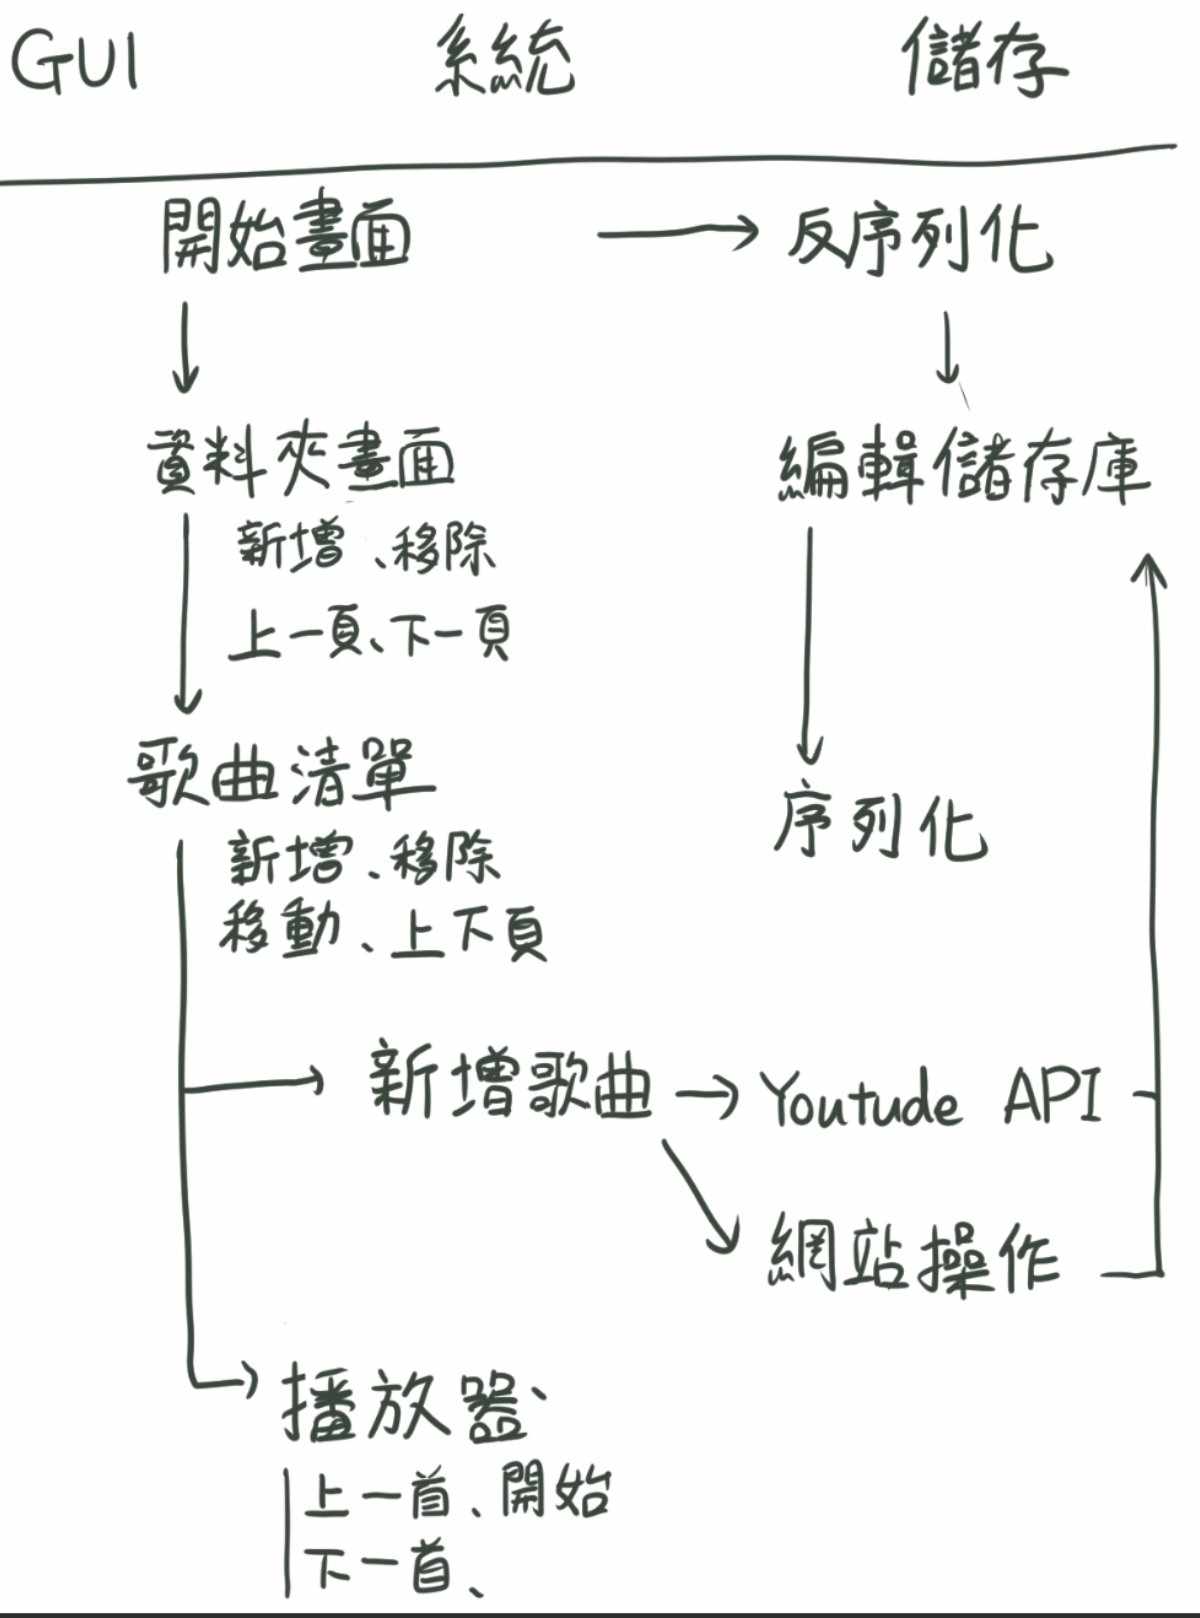 GUI 系統 儲存
開始畫面 反序列化
資料夾畫面 編輯儲存庫
新增、移除
上一頁、下一頁
歌曲清單 序列化
新增、移除
移動、上下頁
新增歌曲 Youtude API
網站操作
播放器、
上一首、開始
下一首、